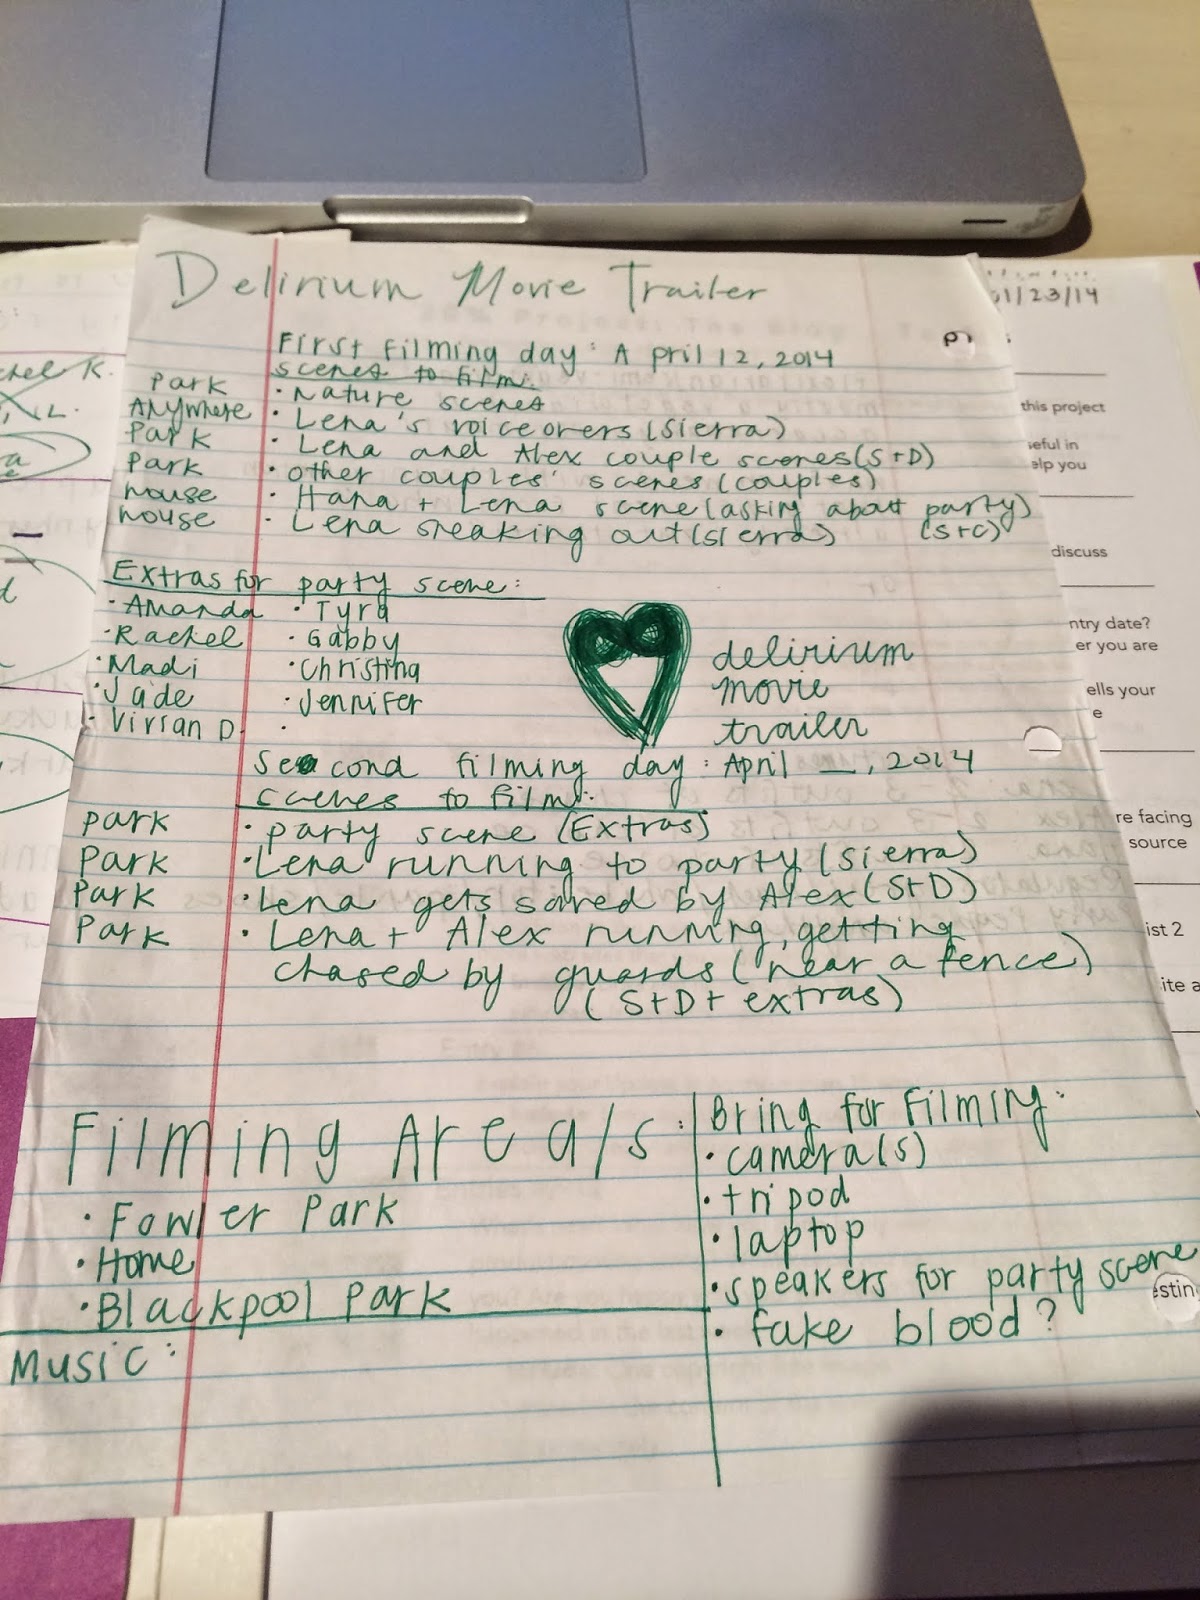 Delirium Movie Trailer
First filming day: April 12, 2014
scenes to film:
Park · Nature scenes
Anywhere · Lena's voiceovers (Sierra)
Park · Lena and Alex couple scenes (S+D)
Park · other couples' scenes (couples)
house · Hana + Lena scene (asking about party)
(S+C)
house · Lena sneaking out (sierra)
Extras for party scene:
· Amanda · Tyra
· Rachel · Gabby
· Madi · Christina
· Jade · Jennifer
· Vivian D. ·
delirium
movie
trailer
Second filming day: April __, 2014
scenes to film:
park · party scene (Extras)
Park · Lena running to party (sierra)
Park · Lena gets saved by Alex (S+D)
Park · Lena + Alex running, getting
chased by guards (near a fence)
(S+D+ extras)
Filming Area/s:
· Fowler Park
· Home
· Blackpool Park
Music:
Bring for Filming:
· camera(s)
· tripod
· laptop
· speakers for party scene
· fake blood?
chel K.
01/23/14
this project
seful in
elp you
discuss
ntry date?
er you are
ells your
e
re facing
source
ist 2
ite a
estin